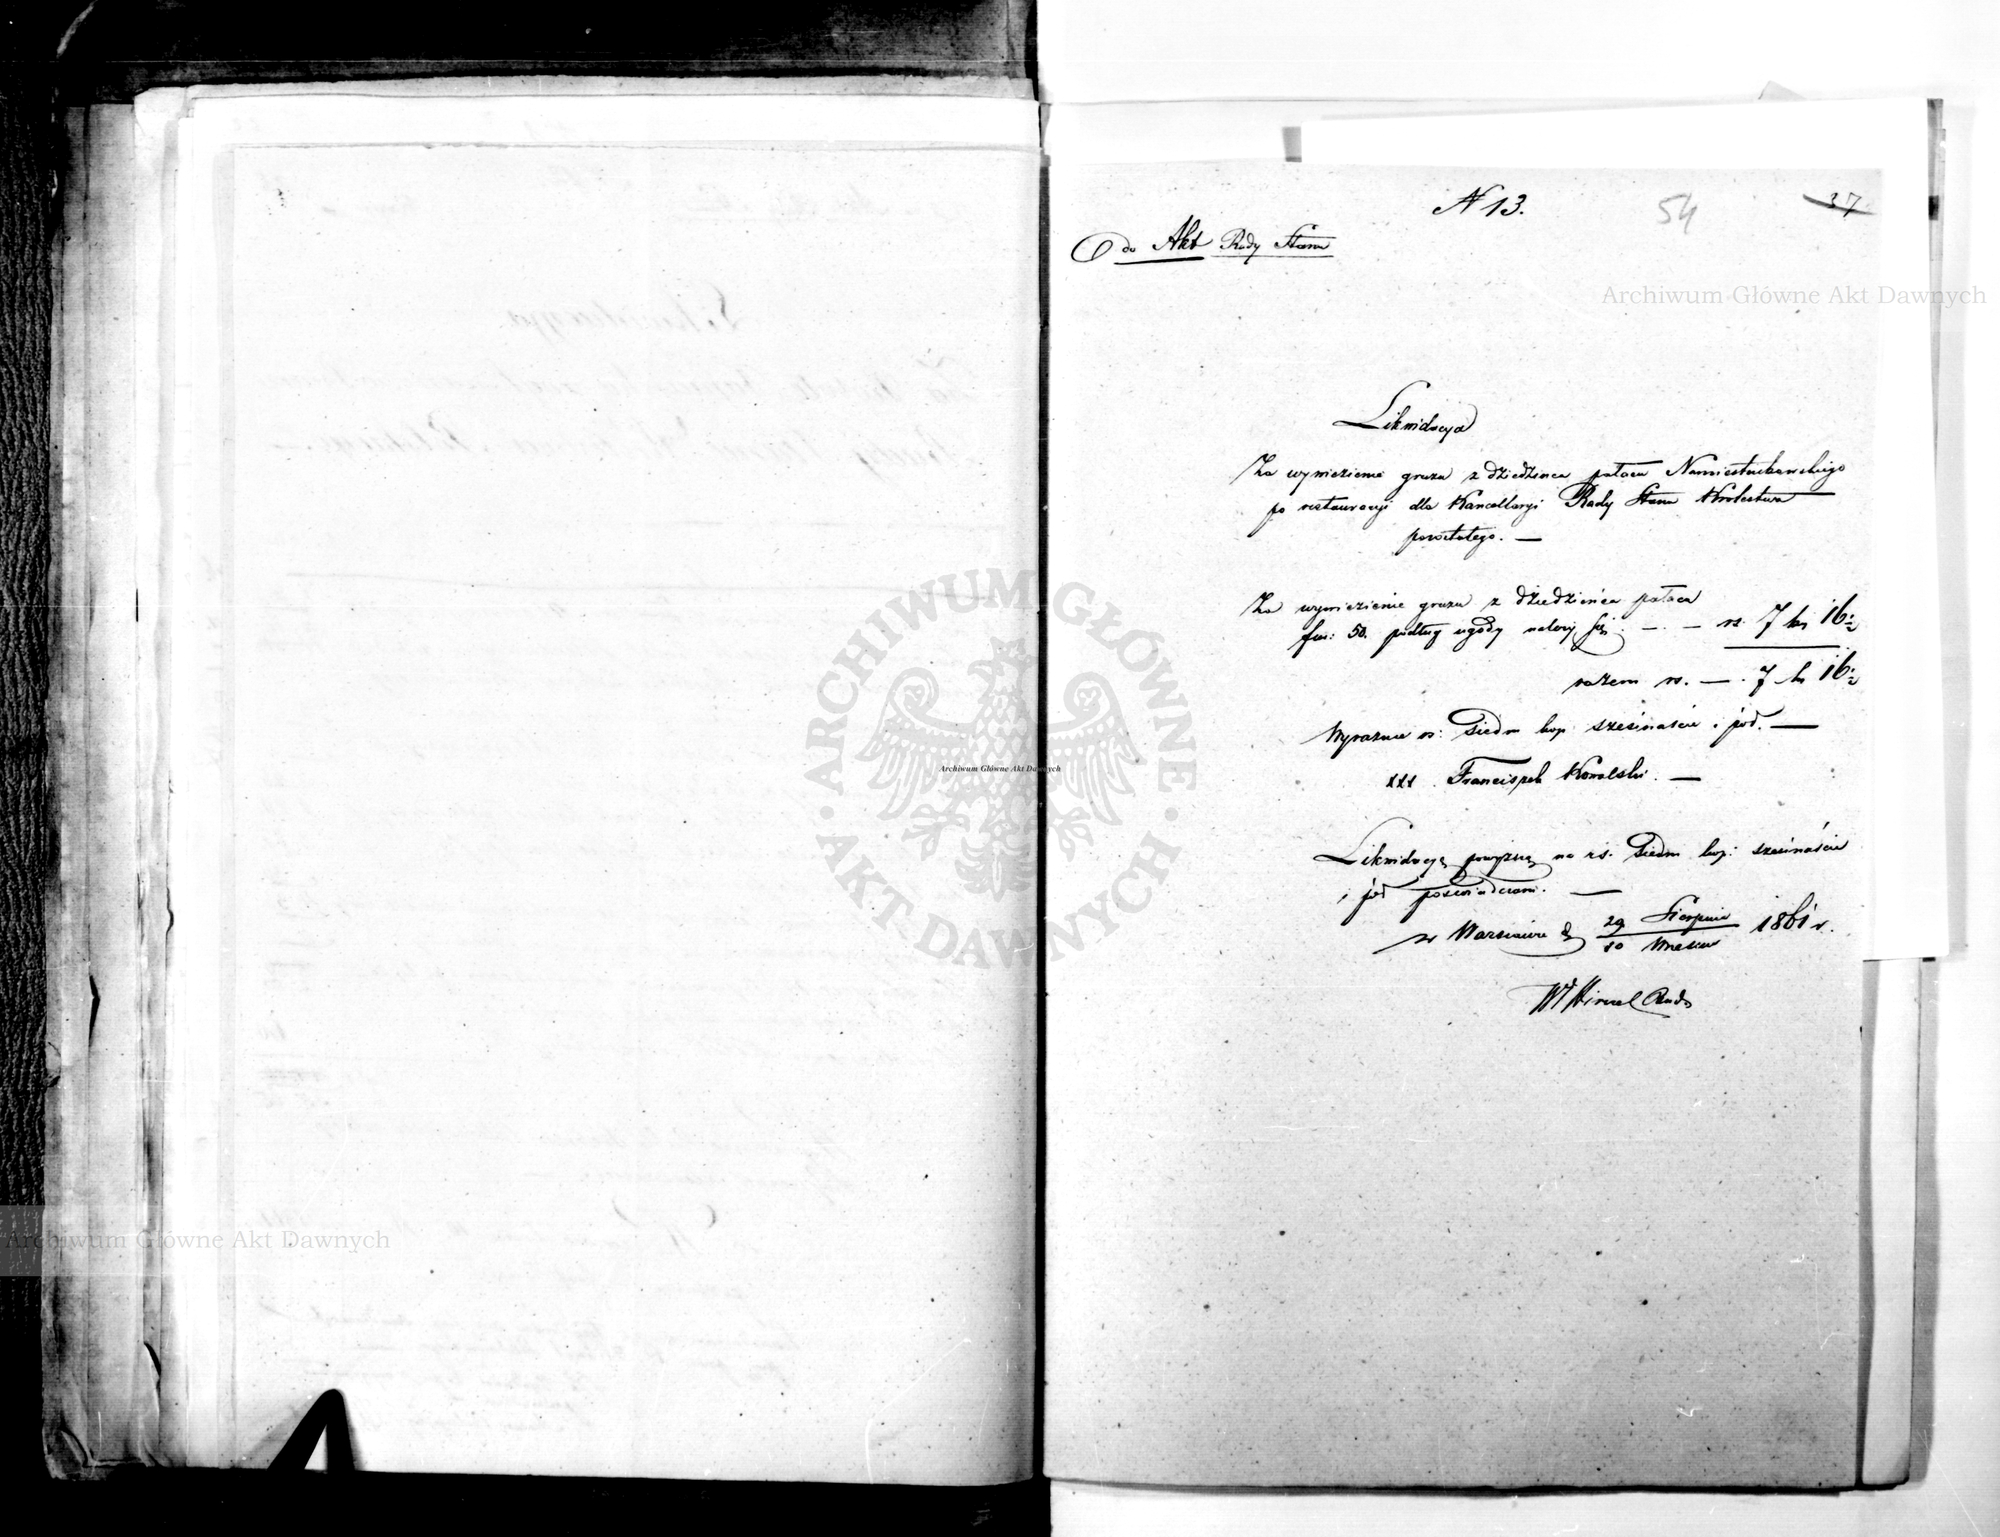 N 13.
54
37
do Akt Rady Stanu
Archiwum Główne Akt Dawnych
Likwidacya
Za wywiezienie gruzu z dziedzińca pałacu Namiestnikowskiego
po restauracyi dla Kancellaryi Rady Stanu Królestwa
pozostałego. —
Za wywiezienie gruzu z dziedzińca pałacu
fur: 50. podług ugody należy się — . — rs. 7 ko 16 ½
razem rs. — . 7 k 16 ½
Wyraźnie rs: siedm kop: szesinaście i pół. —
xxx . Franciszek Kowalski. —
Likwidacyę powyższą na rs. siedm kop: szesinaście
i pół poświadczam. —
w Warszawie d 29 Sierpnia / 10 Wrześni 1861 r.
ARCHIWUM GŁÓWNE · AKT DAWNYCH ·
Archiwum Główne Akt Dawnych
Archiwum Główne Akt Dawnych